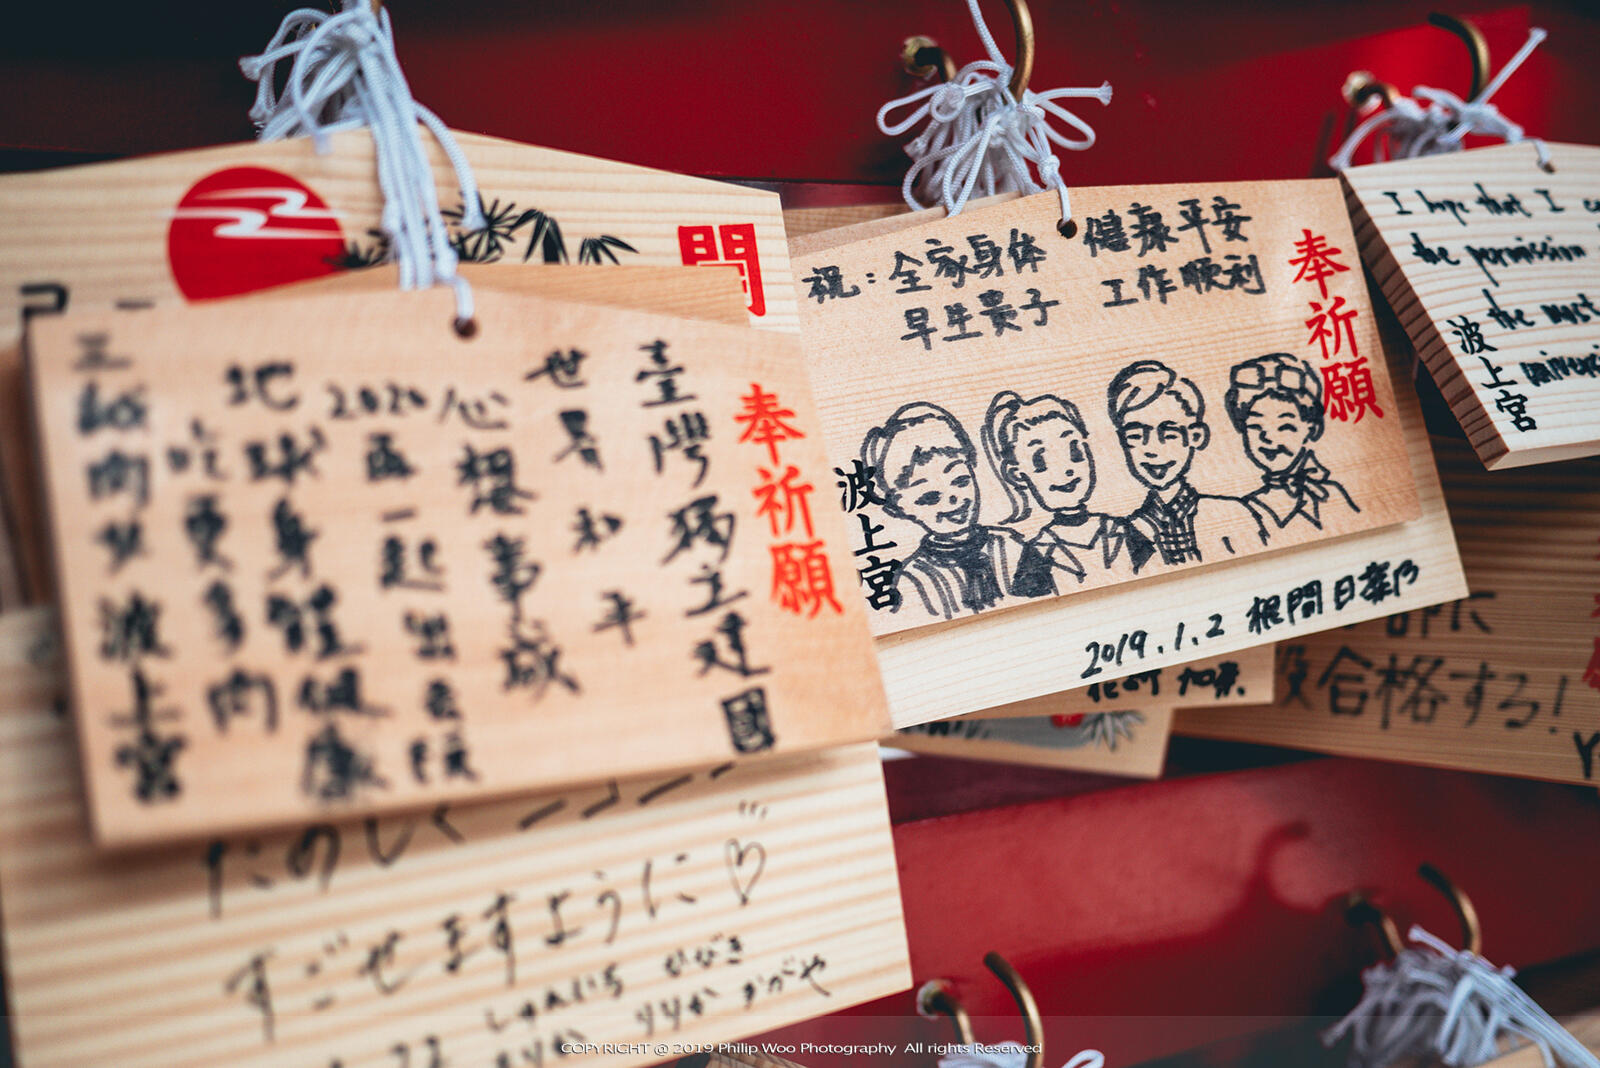 開
奉祈願
臺灣獨立建國
世界和平
心想事成
2020再一起出去玩
地球身體健康
吃更多肉
波上宮
奉祈願
祝：全家身体 健康平安
早生贵子 工作顺利
波上宮
2019.1.2 根間日菜乃
I hope that I
the permission
the most
波上宮
合格する!
たのしく
すごせますように♡
しゅんいち ひびき
りりか
22
COPYRIGHT @ 2019 Philip Woo Photography All rights Reserved